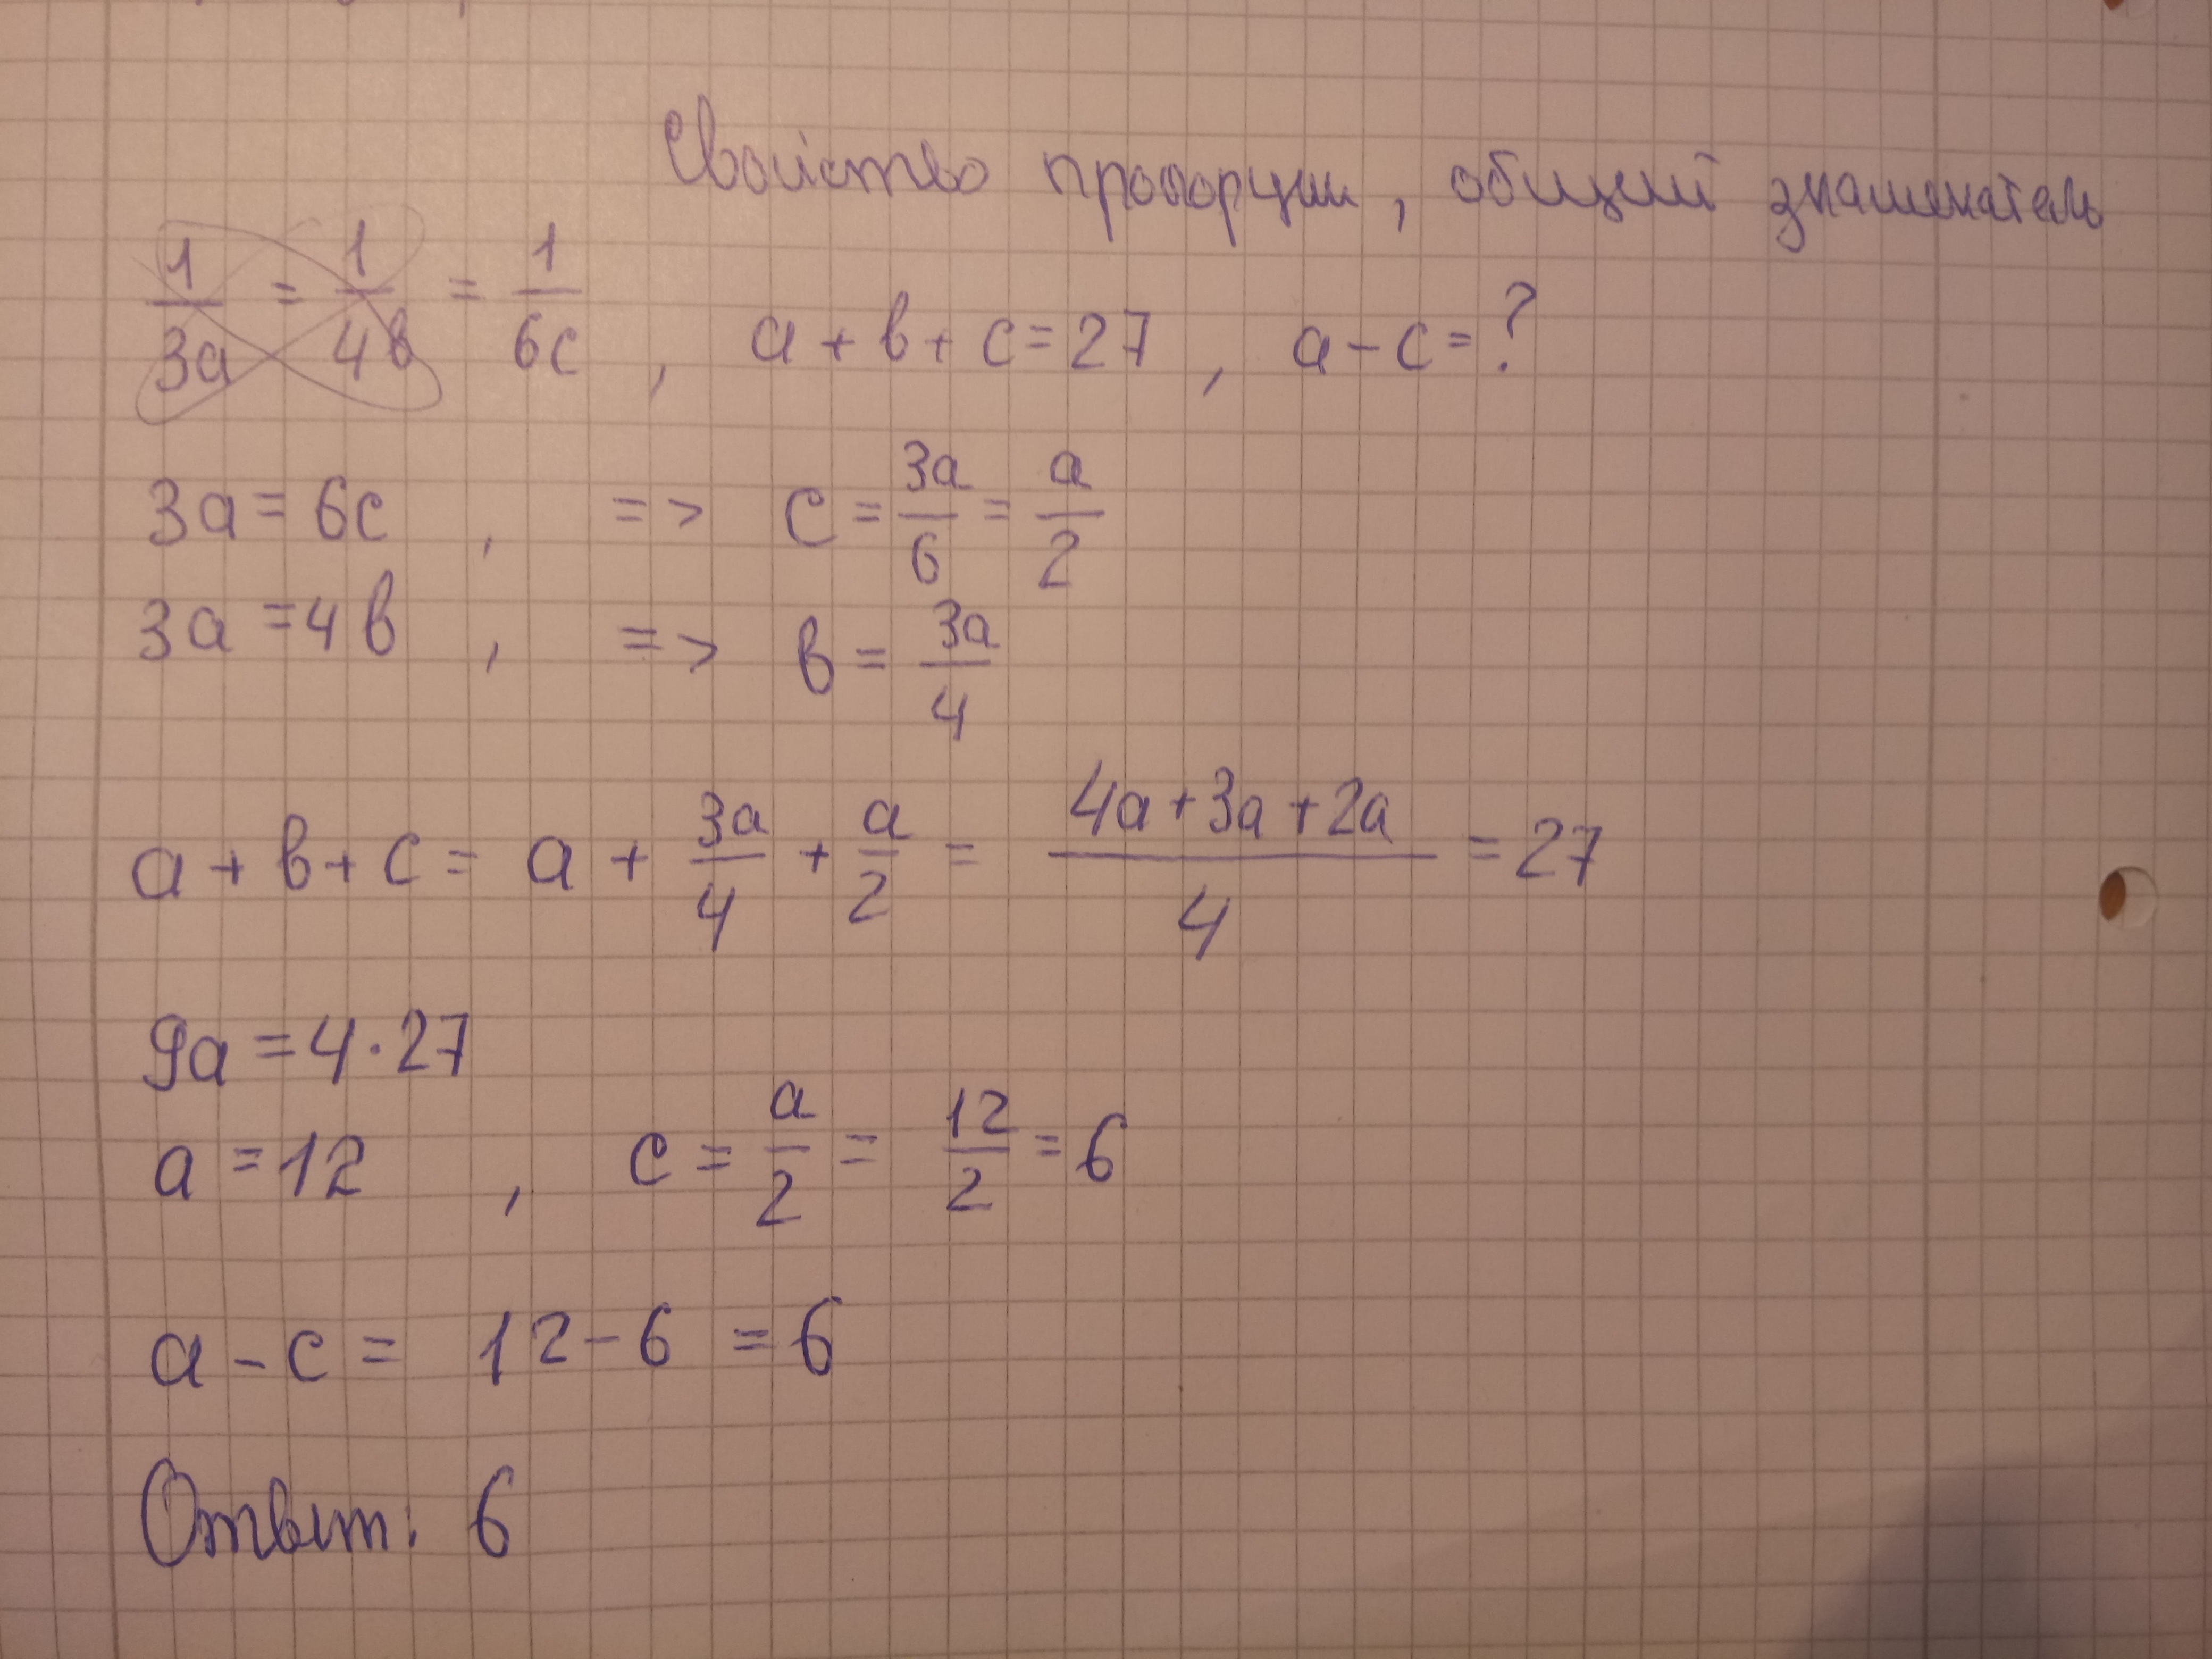 Свойство пропорции, общий знаменатель
1/3a = 1/4в = 1/6c , a + в + c = 27 , a - c = ?
3a = 6c , => c = 3a/6 = a/2
3a = 4в , => в = 3a/4
a + в + c = a + 3a/4 + a/2 = (4a + 3a + 2a)/4 = 27
9a = 4 · 27
a = 12 , c = a/2 = 12/2 = 6
a - c = 12 - 6 = 6
Ответ: 6